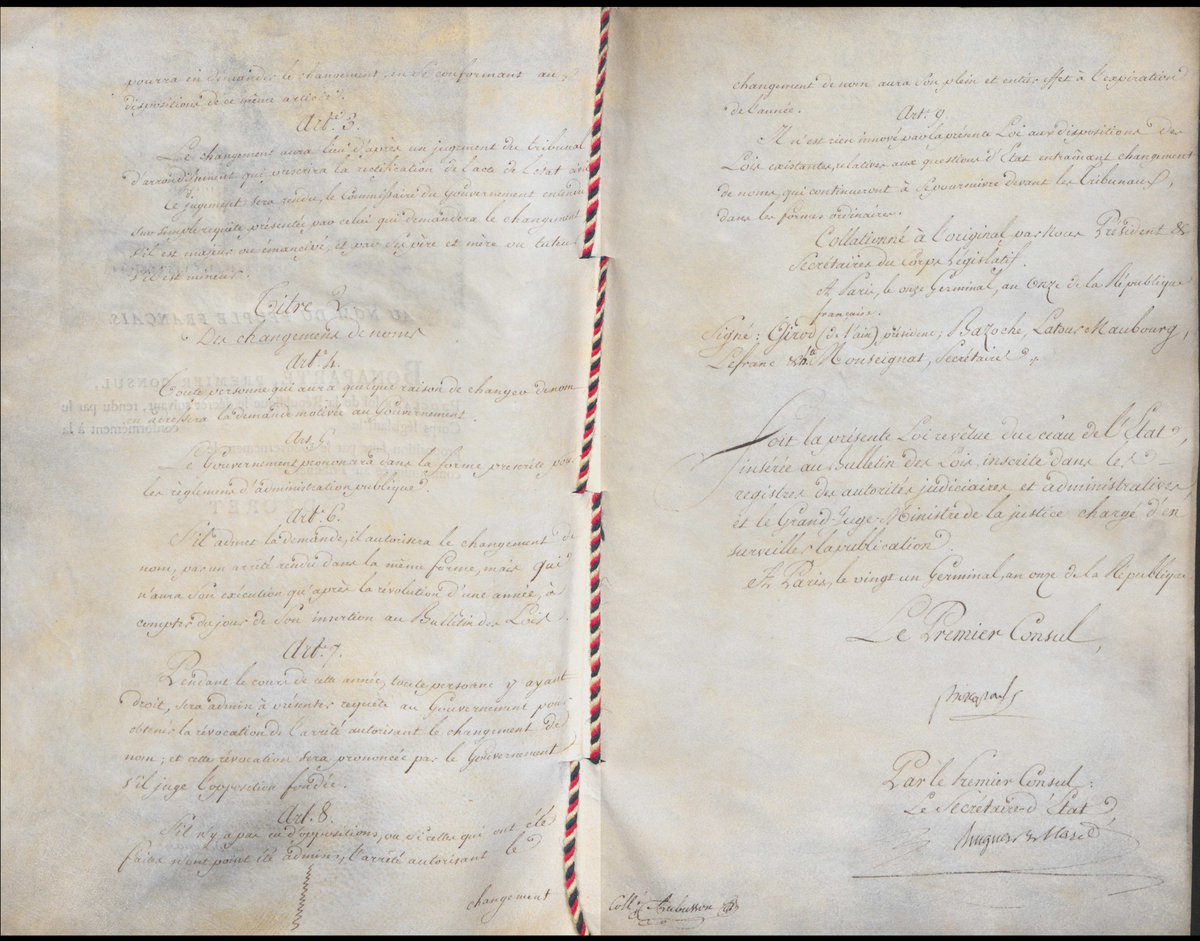 pourra en demander le changement, en se conformant aux
dispositions de ce même article.
Art.e 3.
Le changement aura lieu d'après un jugement du tribunal
d'arrondissement qui prescrira la rectification de l'acte de l'état civil
Ce jugement sera rendu, le Commissaire du Gouvernement entendu
sur simple requête présentée par celui qui demandera le changement
s'il est majeur ou émancipé, et par ses père et mère ou tuteur
s'il est mineur.
Titre 2.
Des changemens de noms
Art.e 4.
Toute personne qui aura quelque raison de changer de nom
en adressera la demande motivée au Gouvernement.
Art. 5.
Le Gouvernement prononcera dans la forme prescrite pour
les règlemens d'administration publique.
Art. 6.
S'il admet la demande, il autorisera le changement de
nom, par un arrêté rendu dans la même forme, mais qui
n'aura son exécution qu'après la révolution d'une année, à
compter du jour de son insertion au Bulletin des Lois.
Art. 7.
Pendant le cours de cette année, toute personne y ayant
droit, sera admise à présenter requête au Gouvernement pour
obtenir la révocation de l'arrêté autorisant le changement de
nom; et cette révocation sera prononcée par le Gouvernement
s'il juge l'opposition fondée.
Art. 8.
S'il n'y a pas eu d'oppositions, ou si celles qui ont été
faites n'ont point été admises, l'arrêté autorisant le
changement
changement de nom aura son plein et entier effet à l'expiration
de l'année.
Art. 9
Il n'est rien innové par la présente Loi aux dispositions des
Lois existantes, relatives aux questions d'Etat entraînant changement
de noms, qui continueront à se poursuivre devant les Tribunaux,
dans les formes ordinaires.
Collationné à l'original par nous Président &
Secrétaires du Corps Législatif.
A Paris, le onze Germinal, an Onze de la République
française.
Signé: Girod (de l'ain), président, Bazoche, Latour Maubourg,
Lefranc & Monseignat, Secrétaires.
Soit la présente Loi revêtue du sceau de l'Etat,
insérée au Bulletin des Lois, inscrite dans les
registres des autorités judiciaires et administratives,
et le Grand-Juge-Ministre de la justice chargé d'en
surveiller la publication.
A Paris, le vingt un Germinal, an onze de la République
Le Premier Consul,
Bonaparte
Par le Premier Consul:
Le Secrétaire d'Etat
Hugues B. Maret
Coll. Aubusson